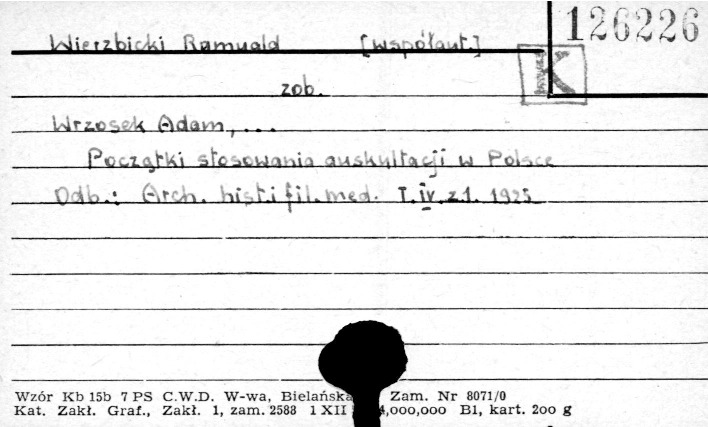 126226
Wierzbicki Romuald [współaut.]
K
zob.
Wrzosek Adam, ...
Początki stosowania auskultacji w Polsce
Odb.: Arch. hist. i fil. med. T. IV. z. 1. 1925
Wzór Kb 15b 7 PS C.W.D. W-wa, Bielańska Zam. Nr 8071/0
Kat. Zakł. Graf., Zakł. 1, zam. 2588 1 XII 4,000,000 B1, kart. 200 g